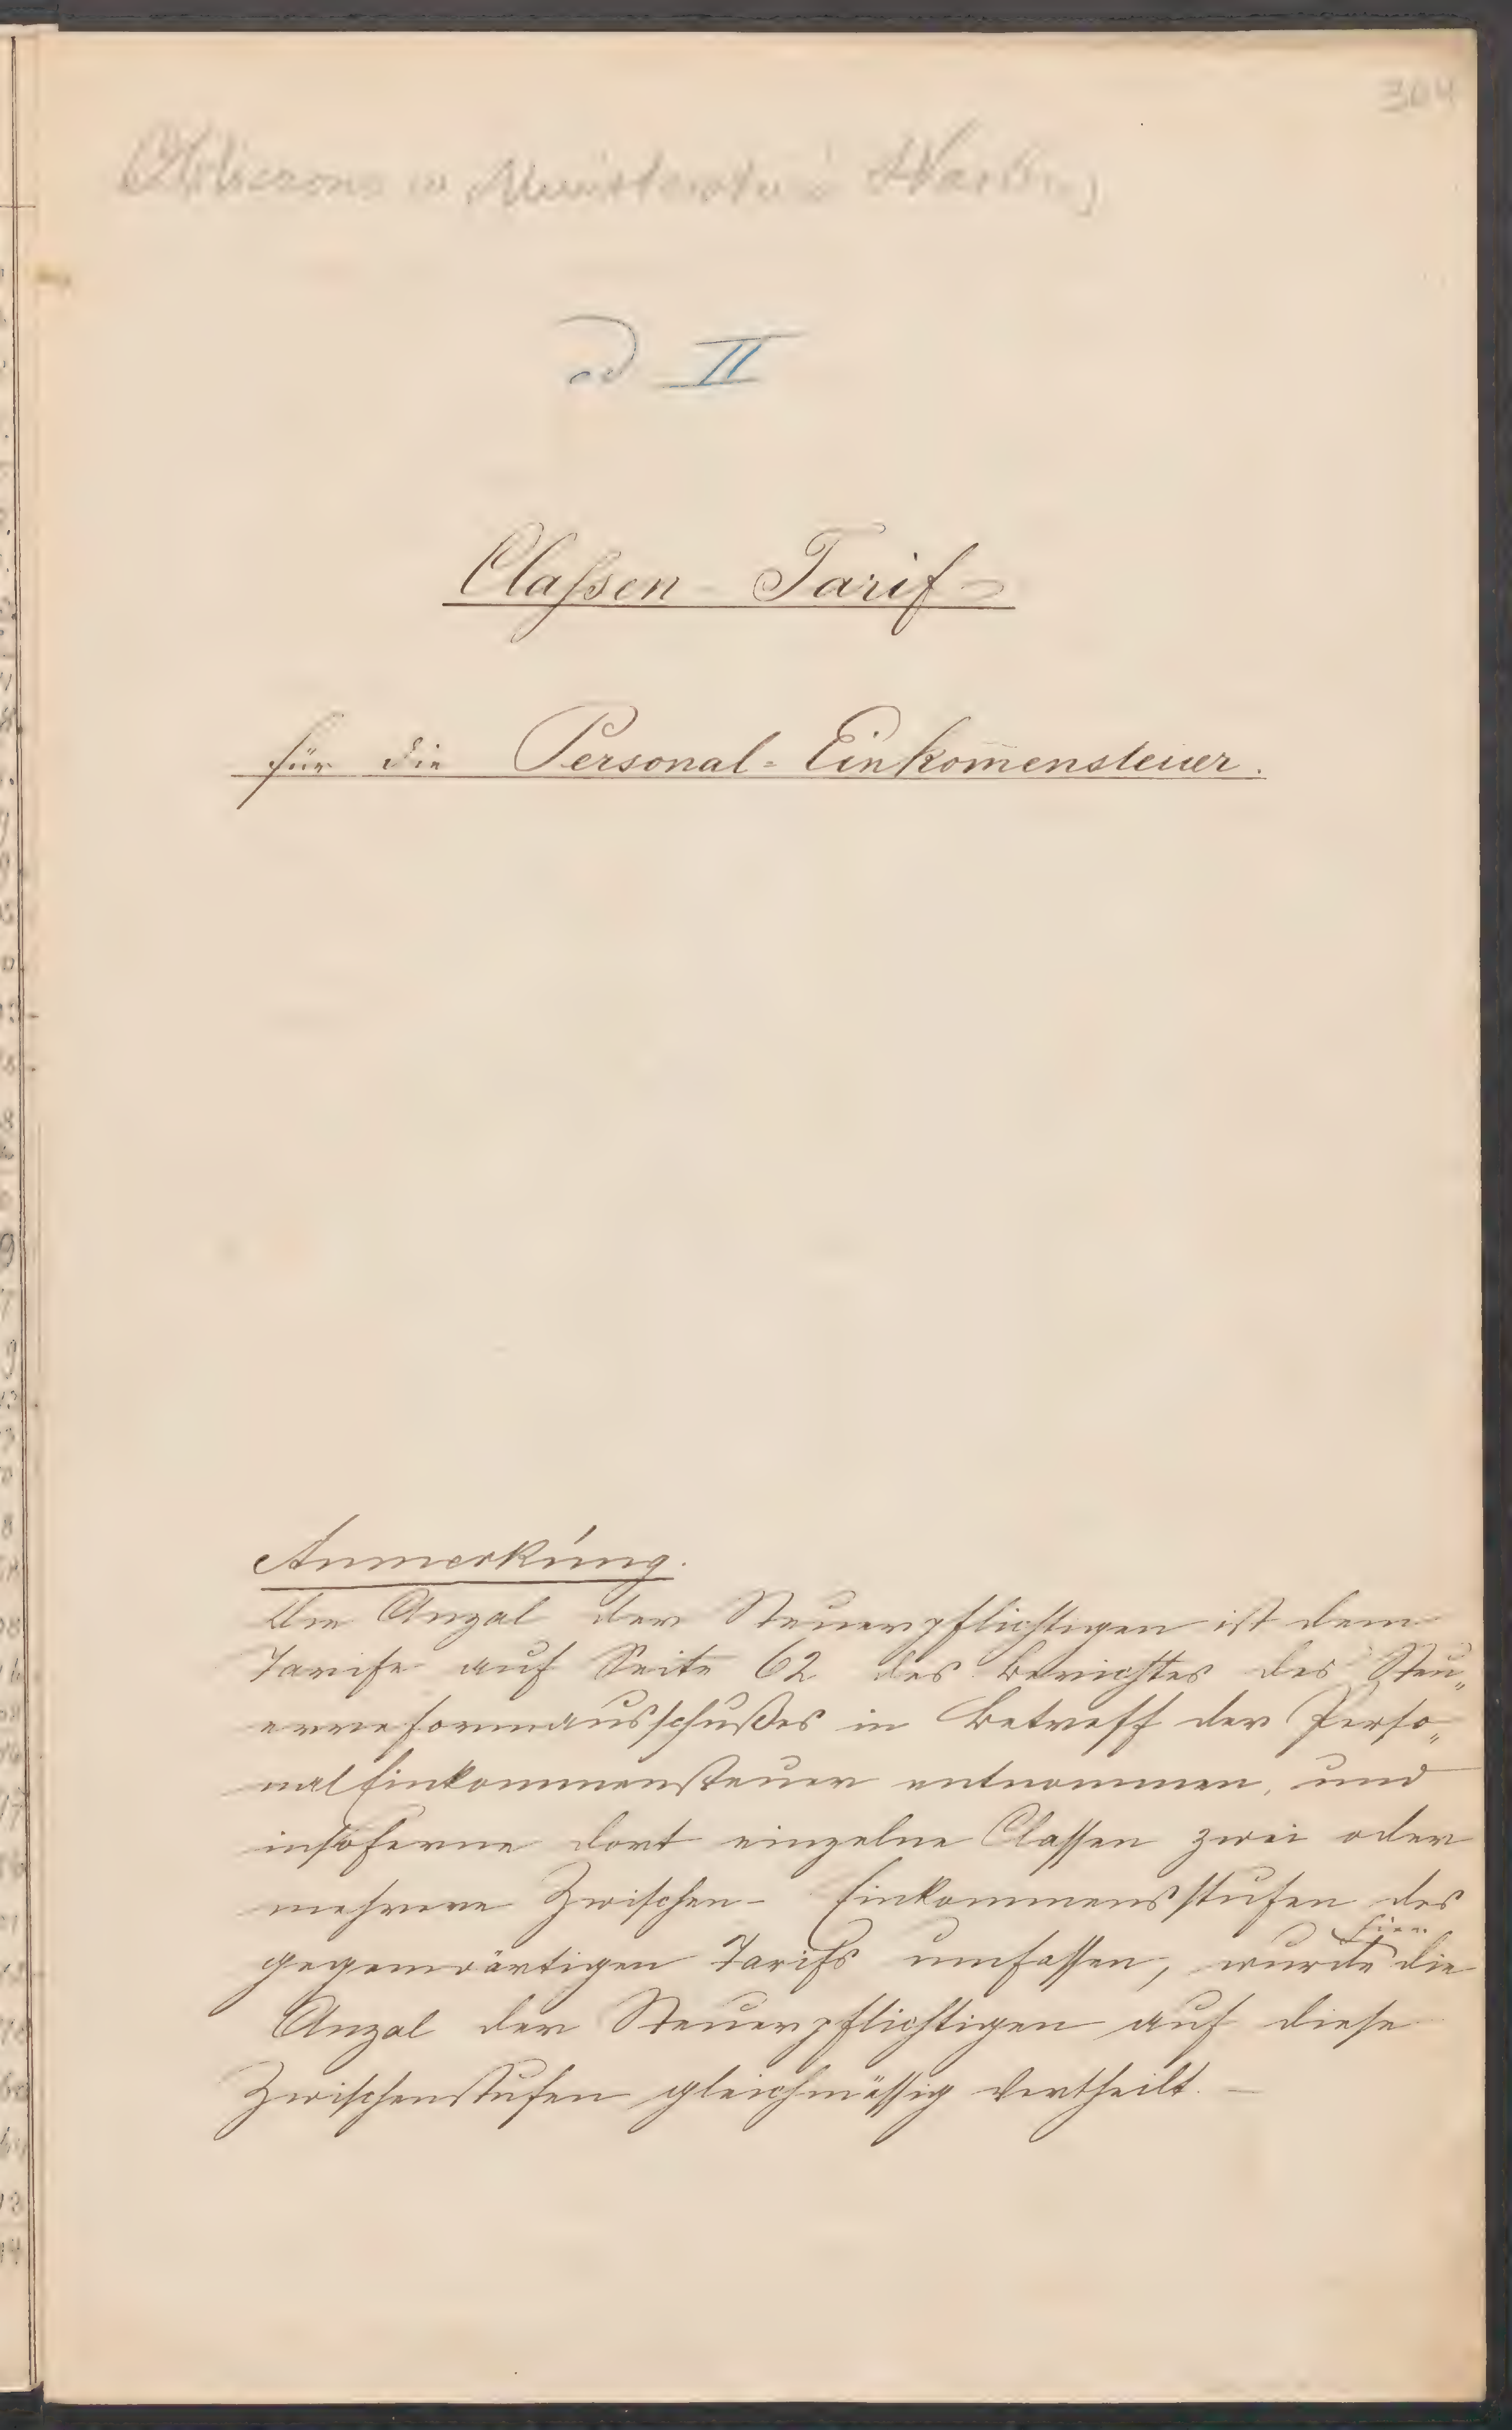 304
w Ministerstwie Skarbu
ad II
Classen-Tarif
für die Personal-Einkom̄ensteuer.
Anmerkung.
Die Anzal der Steuerpflichtigen ist dem
Tarife auf Seite 62 des Berichtes des Steu„
erreformausschußes in Betreff der Perso„
nal Einkommensteuer entnommen, und
insoferne dort einzelne Classen zwei oder
mehrere Zwischen- Einkommensstufen des
gegenwärtigen Tarifs umfassen, wurde hier die
Anzal der Steuerpflichtigen auf diese
Zwischenstufen gleichmässig vertheilt. —